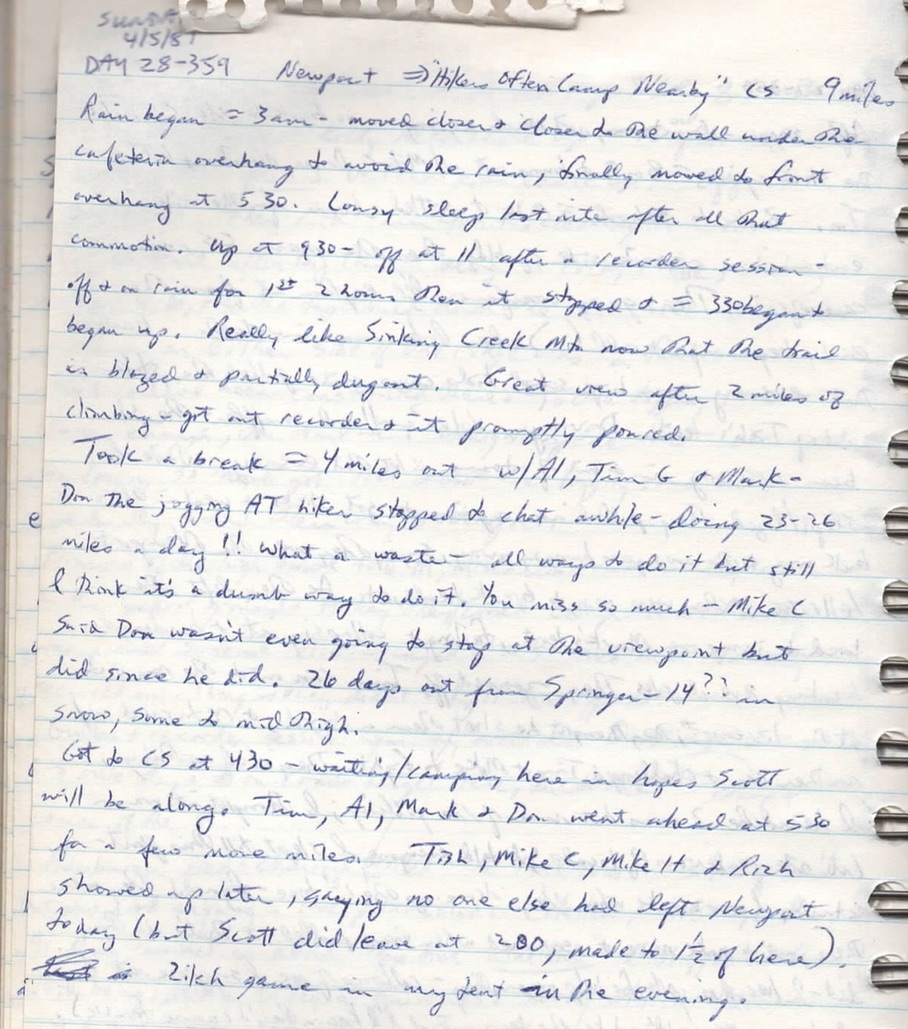 SUNDAY
4/5/81
DAY 28-359 Newport ⇒ "Hikers Often Camp Nearby" CS 9 miles
Rain began ≈ 3am - moved closer & closer to the wall under the
cafeteria overhang to avoid the rain, finally moved to front
overhang at 530. Lousy sleep last nite after all that
commotion. Up at 930 - off at 11 after a recorder session -
off & on rain for 1st 2 hours then it stopped & ≈ 330 began &
began up. Really like Sinking Creek Mtn now that the trail
is blazed & partially dugout. Great view after 2 miles of
climbing - got out recorder & it promptly poured.
Took a break ≈ 4 miles out w/ Al, Tim G & Mark -
Don the jogging AT hiker stopped to chat awhile - doing 23-26
miles a day!! What a waste - all ways to do it but still
I think it's a dumb way to do it. You miss so much - Mike C
said Don wasn't even going to stop at the viewpoint but
did since he did. 26 days out from Springer - 14?? in
snow, some to mid thigh.
Got to CS at 430 - waiting/camping here in hopes Scott
will be along. Tim, Al, Mark & Don went ahead at 530
for a few more miles. Tish, Mike C, Mike H & Rich
showed up later, saying no one else had left Newport
today (but Scott did leave at 200, made to 1½ of here).
Zilch game in my tent in the evening.